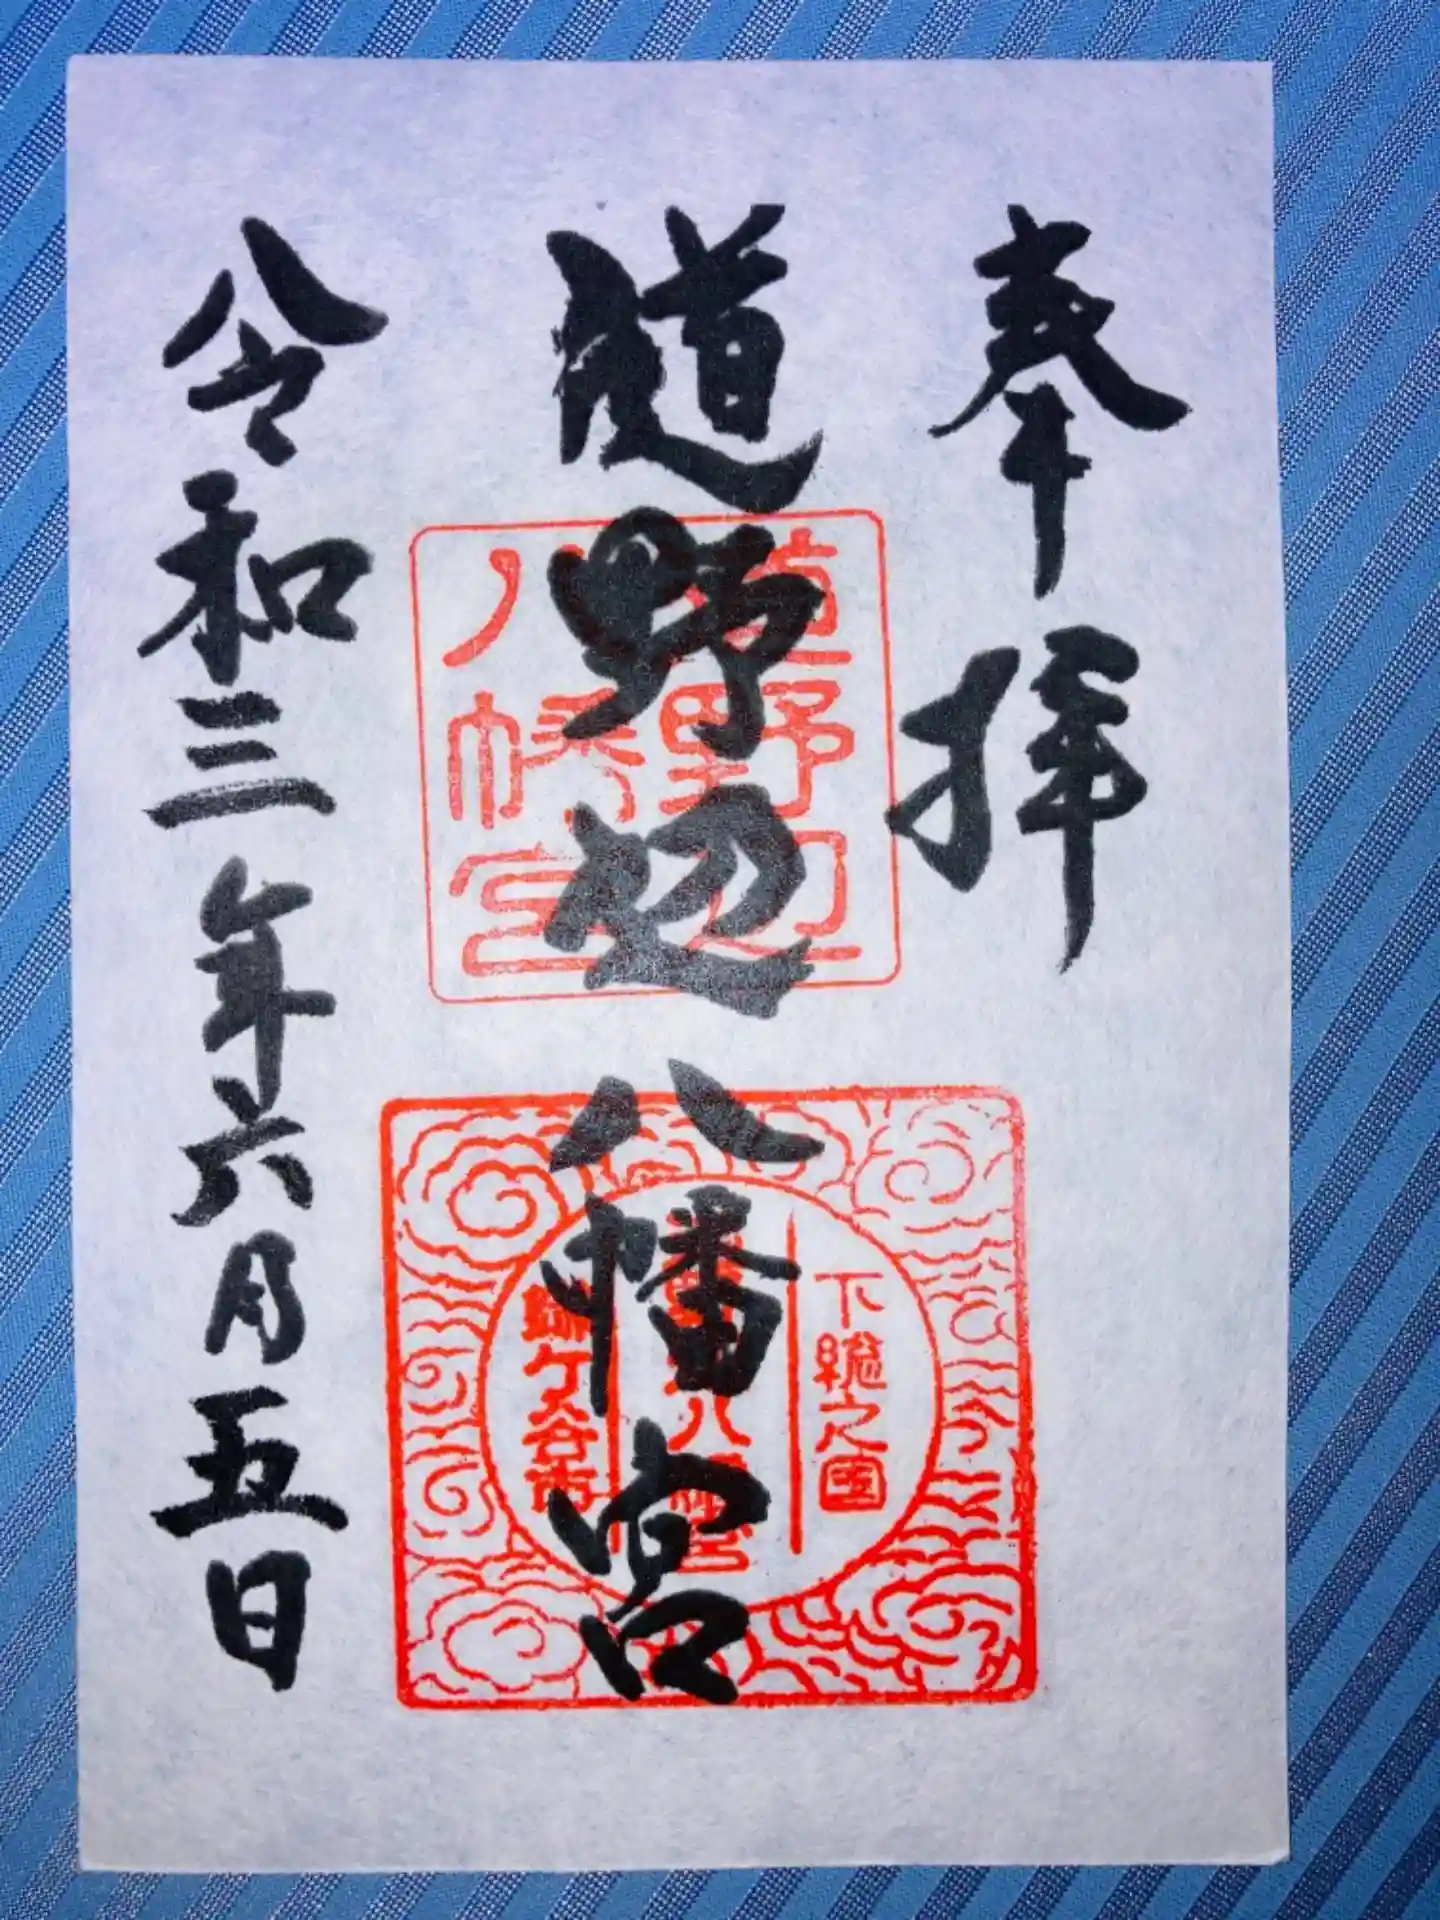 奉拝
道野辺八幡宮
令和三年六月五日
道野辺
八幡宮
下総之国
八幡宮
鎌ケ谷市